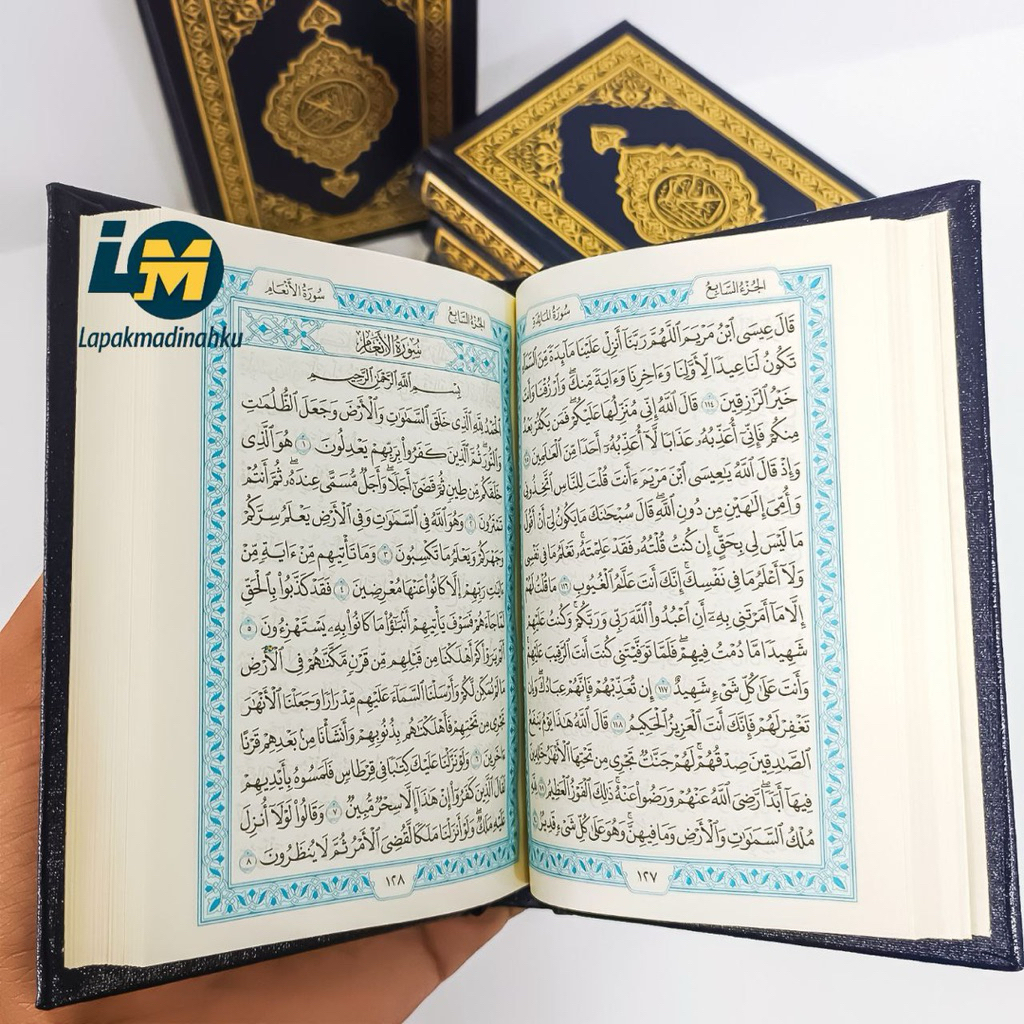 LM
Lapakmadinahku
الجُزْءُ السَّابِعُ
سُورَةُ المَائِدَةِ
قَالَ عِيسَى ٱبْنُ مَرْيَمَ ٱللَّهُمَّ رَبَّنَآ أَنزِلْ عَلَيْنَا مَآئِدَةً مِّنَ
تَكُونُ لَنَا عِيدًا لِّأَوَّلِنَا وَءَاخِرِنَا وَءَايَةً مِّنكَ وَٱرْزُقْنَا وَأَنتَ
خَيْرُ ٱلرَّٰزِقِينَ ١١٤ قَالَ ٱللَّهُ إِنِّى مُنَزِّلُهَا عَلَيْكُمْ فَمَن يَكْفُرْ بَعْدُ
مِنكُمْ فَإِنِّىٓ أُعَذِّبُهُۥ عَذَابًا لَّآ أُعَذِّبُهُۥٓ أَحَدًا مِّنَ ٱلْعَٰلَمِينَ
وَإِذْ قَالَ ٱللَّهُ يَٰعِيسَى ٱبْنَ مَرْيَمَ ءَأَنتَ قُلْتَ لِلنَّاسِ ٱتَّخِذُونِى
وَأُمِّىَ إِلَٰهَيْنِ مِن دُونِ ٱللَّهِ قَالَ سُبْحَٰنَكَ مَا يَكُونُ لِىٓ أَنْ أَقُولَ
مَا لَيْسَ لِى بِحَقٍّ إِن كُنتُ قُلْتُهُۥ فَقَدْ عَلِمْتَهُۥ تَعْلَمُ مَا فِى نَفْسِى
وَلَآ أَعْلَمُ مَا فِى نَفْسِكَ إِنَّكَ أَنتَ عَلَّٰمُ ٱلْغُيُوبِ ١١٦ مَا قُلْتُ لَهُمْ
إِلَّا مَآ أَمَرْتَنِى بِهِۦٓ أَنِ ٱعْبُدُوا۟ ٱللَّهَ رَبِّى وَرَبَّكُمْ وَكُنتُ عَلَيْهِمْ
شَهِيدًا مَّا دُمْتُ فِيهِمْ فَلَمَّا تَوَفَّيْتَنِى كُنتَ أَنتَ ٱلرَّقِيبَ عَلَيْهِمْ
وَأَنتَ عَلَىٰ كُلِّ شَىْءٍ شَهِيدٌ ١١٧ إِن تُعَذِّبْهُمْ فَإِنَّهُمْ عِبَادُكَ وَإِن
تَغْفِرْ لَهُمْ فَإِنَّكَ أَنتَ ٱلْعَزِيزُ ٱلْحَكِيمُ ١١٨ قَالَ ٱللَّهُ هَٰذَا يَوْمُ يَنفَعُ
ٱلصَّٰدِقِينَ صِدْقُهُمْ لَهُمْ جَنَّٰتٌ تَجْرِى مِن تَحْتِهَا ٱلْأَنْهَٰرُ خَٰلِدِينَ
فِيهَآ أَبَدًا رَّضِىَ ٱللَّهُ عَنْهُمْ وَرَضُوا۟ عَنْهُ ذَٰلِكَ ٱلْفَوْزُ ٱلْعَظِيمُ ١١٩
مُلْكُ ٱلسَّمَٰوَٰتِ وَٱلْأَرْضِ وَمَا فِيهِنَّ وَهُوَ عَلَىٰ كُلِّ شَىْءٍ قَدِيرٌۢ
١٢٧
الجُزْءُ السَّابِعُ
سُورَةُ الأَنْعَامِ
سُورَةُ الأَنْعَامِ
بِسْمِ ٱللَّهِ ٱلرَّحْمَٰنِ ٱلرَّحِيمِ
ٱلْحَمْدُ لِلَّهِ ٱلَّذِى خَلَقَ ٱلسَّمَٰوَٰتِ وَٱلْأَرْضَ وَجَعَلَ ٱلظُّلُمَٰتِ
وَٱلنُّورَ ثُمَّ ٱلَّذِينَ كَفَرُوا۟ بِرَبِّهِمْ يَعْدِلُونَ ١ هُوَ ٱلَّذِى
خَلَقَكُم مِّن طِينٍ ثُمَّ قَضَىٰٓ أَجَلًا وَأَجَلٌ مُّسَمًّى عِندَهُۥ ثُمَّ أَنتُمْ
تَمْتَرُونَ ٢ وَهُوَ ٱللَّهُ فِى ٱلسَّمَٰوَٰتِ وَفِى ٱلْأَرْضِ يَعْلَمُ سِرَّكُمْ
وَجَهْرَكُمْ وَيَعْلَمُ مَا تَكْسِبُونَ ٣ وَمَا تَأْتِيهِم مِّنْ ءَايَةٍ مِّنْ
ءَايَٰتِ رَبِّهِمْ إِلَّا كَانُوا۟ عَنْهَا مُعْرِضِينَ ٤ فَقَدْ كَذَّبُوا۟ بِٱلْحَقِّ
لَمَّا جَآءَهُمْ فَسَوْفَ يَأْتِيهِمْ أَنۢبَٰٓؤُا۟ مَا كَانُوا۟ بِهِۦ يَسْتَهْزِءُونَ ٥
أَلَمْ يَرَوْا۟ كَمْ أَهْلَكْنَا مِن قَبْلِهِم مِّن قَرْنٍ مَّكَّنَّٰهُمْ فِى ٱلْأَرْضِ
مَا لَمْ نُمَكِّن لَّكُمْ وَأَرْسَلْنَا ٱلسَّمَآءَ عَلَيْهِم مِّدْرَارًا وَجَعَلْنَا ٱلْأَنْهَٰرَ
تَجْرِى مِن تَحْتِهِمْ فَأَهْلَكْنَٰهُم بِذُنُوبِهِمْ وَأَنشَأْنَا مِنۢ بَعْدِهِمْ قَرْنًا
ءَاخَرِينَ ٦ وَلَوْ نَزَّلْنَا عَلَيْكَ كِتَٰبًا فِى قِرْطَاسٍ فَلَمَسُوهُ بِأَيْدِيهِمْ
لَقَالَ ٱلَّذِينَ كَفَرُوٓا۟ إِنْ هَٰذَآ إِلَّا سِحْرٌ مُّبِينٌ ٧ وَقَالُوا۟ لَوْلَآ أُنزِلَ
عَلَيْهِ مَلَكٌ وَلَوْ أَنزَلْنَا مَلَكًا لَّقُضِىَ ٱلْأَمْرُ ثُمَّ لَا يُنظَرُونَ ٨
١٢٨